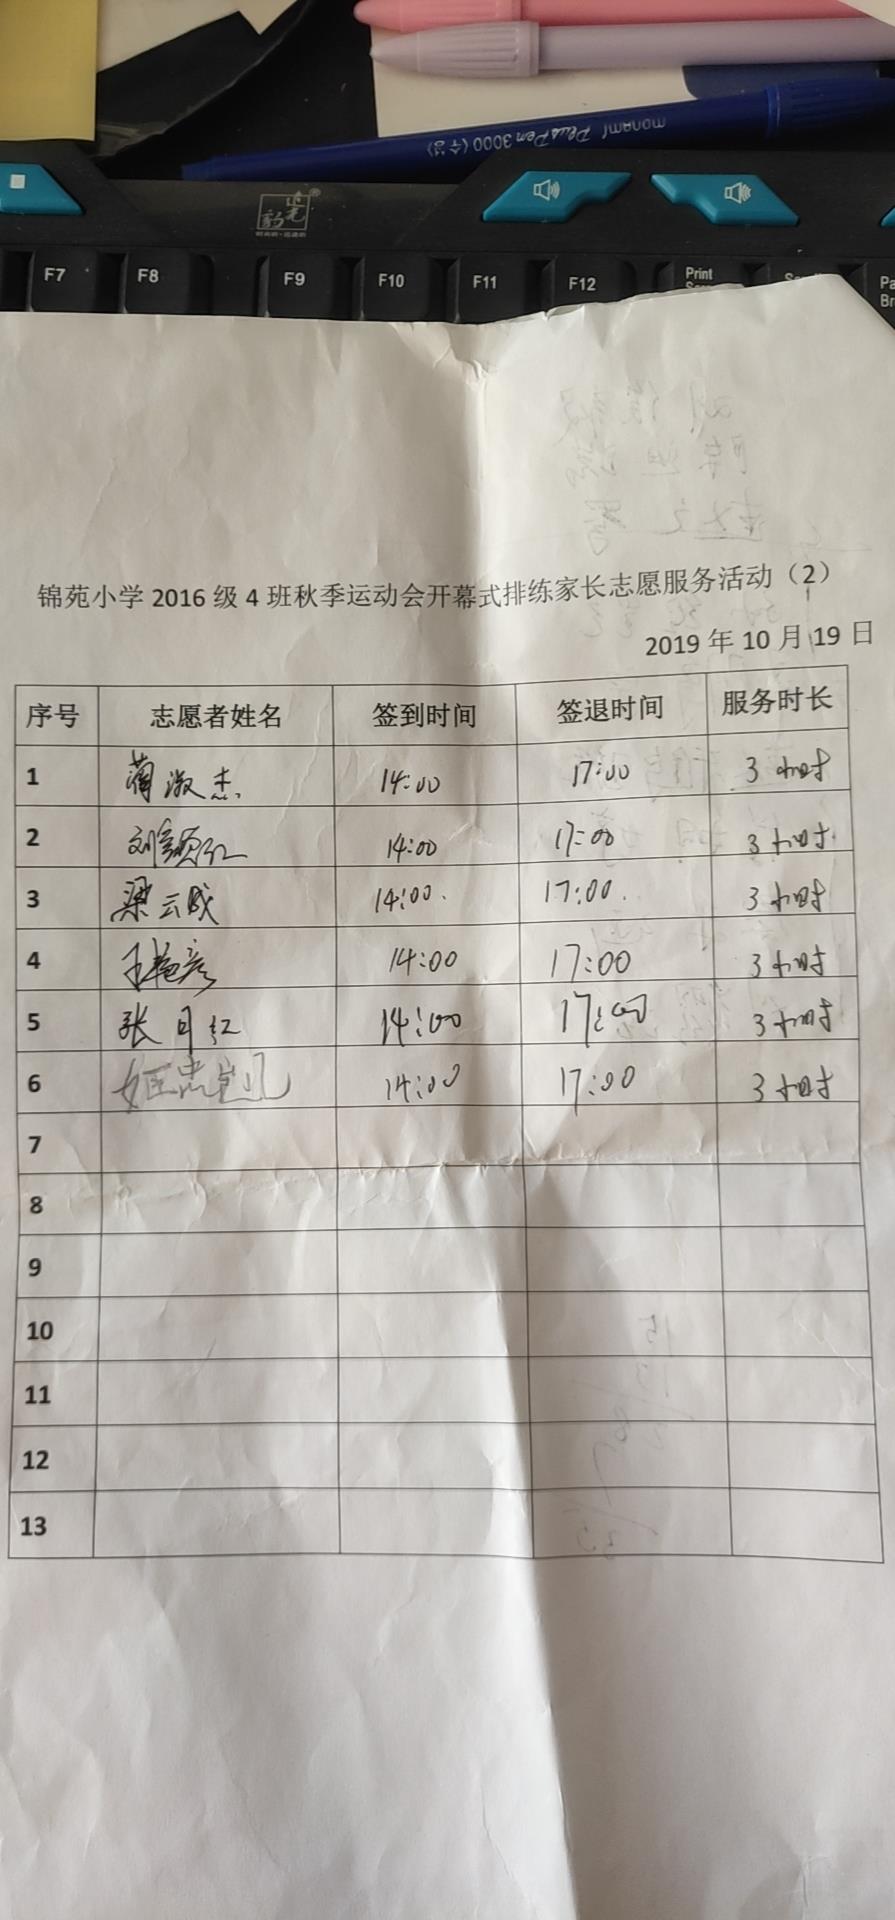 monami Plus Pen 3000 (수성)
追光
F7 F8 F9 F10 F11 F12 Print
锦苑小学 2016 级 4 班秋季运动会开幕式排练家长志愿服务活动（2）
2019 年 10 月 19 日
序号 志愿者姓名 签到时间 签退时间 服务时长
1 14:00 17:00 3 小时
2 刘颖红 14:00 17:00 3 小时
3 梁云成 14:00. 17:00. 3 小时
4 王艳彦 14:00 17:00 3 小时
5 张月红 14:00 17:00 3 小时
6 姬忠凯 14:00 17:00 3 小时
7
8
9
10
11
12
13